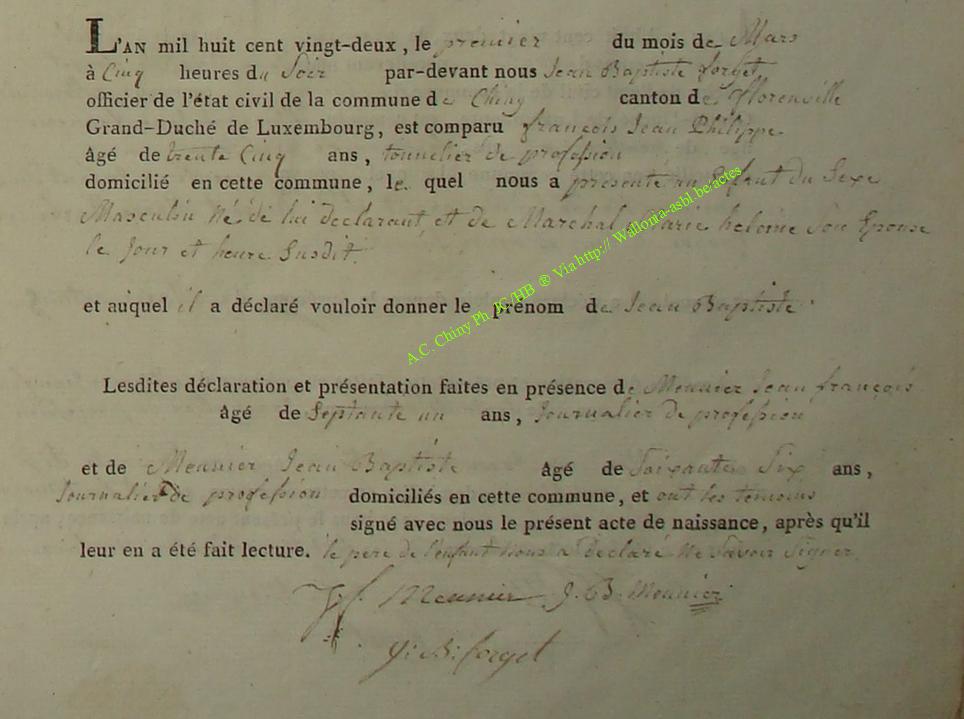 L'AN mil huit cent vingt-deux, le premier du mois de Mars
à Cinq heures du Soir par-devant nous Jean Baptiste forget
officier de l'état civil de la commune de Chiny canton de florenville
Grand-Duché de Luxembourg, est comparu françois Jean Philippe
âgé de trente Cinq ans, tonnelier de profession
domicilié en cette commune, le quel nous a présenté un Enfant du Sexe
Masculin Né de lui déclarant et de Marchal Marie heloine Son Epouse
le Jour et heure Susdit
et auquel il a déclaré vouloir donner le prénom de Jean Baptiste
Lesdites déclaration et présentation faites en présence de Meunier Jean françois
âgé de Septante un ans, Journalier de profession
et de Meunier Jean Baptiste âgé de Soixante Six ans,
Journalier de profession domiciliés en cette commune, et ont les temoins
signé avec nous le présent acte de naissance, après qu'il
leur en a été fait lecture. le pere de l'enfant nous a declaré Ne Savoir Signer
J f Meunier J. B. Meunier
J: B: forget
A.C. Chiny Ph JG/HB ® Via http:// Wallonia-asbl.be/actes